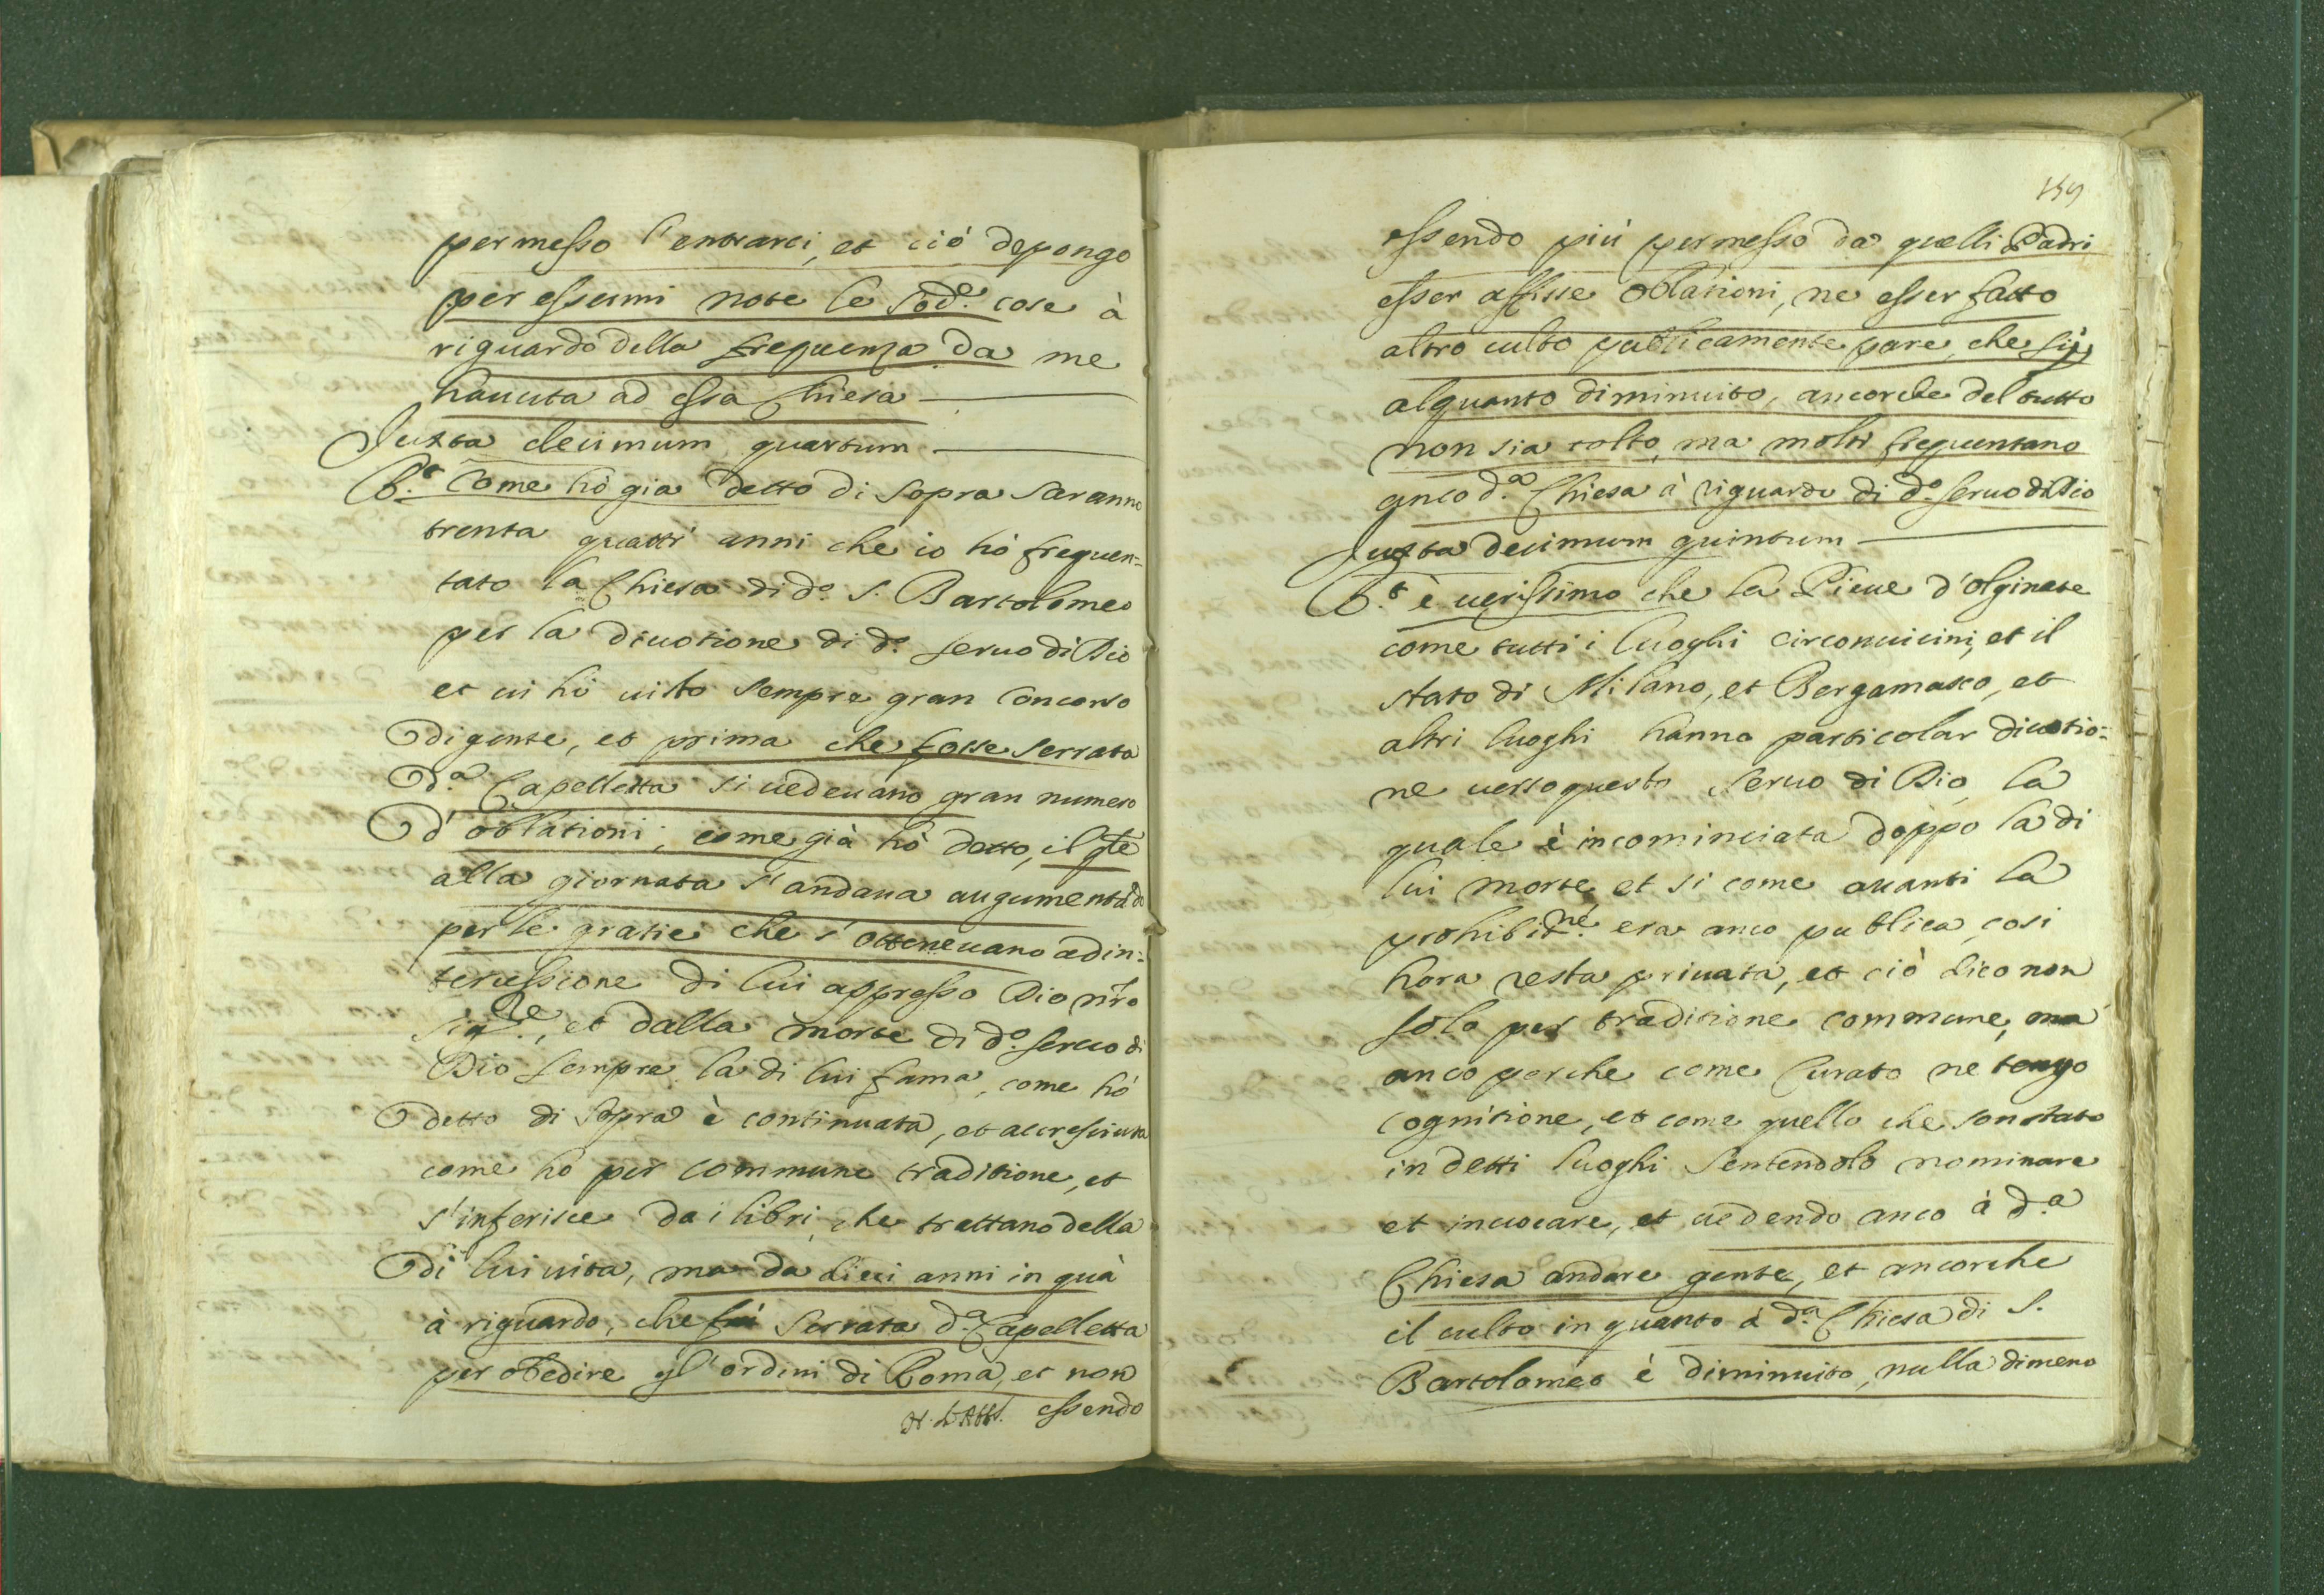 permesso l'entrarci, et ciò depongo
per essermi note le sod.e cose à
riguardo della frequenza da me
hauuta ad essa Chiesa
Juxta decimum quartum
R.t Come hò gia detto di sopra saranno
trenta quattri anni che io hò frequen-
tato la Chiesa di d.o S. Bartolomeo
per la diuotione di d.o seruo di Dio
et ui hò uisto sempre gran Concorso
di gente, et prima che fosse serrata
d.a Capelletta si uedeuano gran numero
d'oblationi, come già hò detto, il qte
alla giornata s'andaua augumentado
per le gratie che s'otteneuano ad in-
tercessione di lui appresso Dio nro
Sig.re, et dalla morte di d.o seruo di
Dio sempre la di lui fama, come hò
detto di sopra è continuata, et accresciuta
come ho per commune traditione, et
s'inferisce da i libri, che trattano della
di lui uita, ma da dieci anni in quà
à riguardo, che fù serrata d.a Capelletta
per obedire gl'ordini di Roma, et non
essendo
159
essendo più permesso da quelli Padri
esser affisse oblationi, ne esser fatto
altro culto publicamente pare, che sij
alquanto diminuito, ancorche del tutto
non sia tolto, ma molti frequentano
anco d.a Chiesa à riguardo di d.o seruo di Dio
Juxta decimum quintum
R.t è uerissimo che la Pieue d'Olginate
come tutti i luoghi circonuicini, et il
stato di Milano, et Bergamasco, et
altri luoghi hanno particolar diuotio-
ne uerso questo seruo di Dio, la
quale è incominciata doppo la di
lui morte, et si come auanti la
prohibit.ne era anco publica, cosi
hora resta priuata, et ciò dico non
solo per traditione commune, ma
anco perche come Curato ne tengo
cognitione, et come quello che son stato
in detti luoghi sentendolo nominare
et inuocare, et uedendo anco à d.a
Chiesa andare gente, et ancorche
il culto in quanto à d.a Chiesa di S.
Bartolomeo è diminuito, nulla dimeno